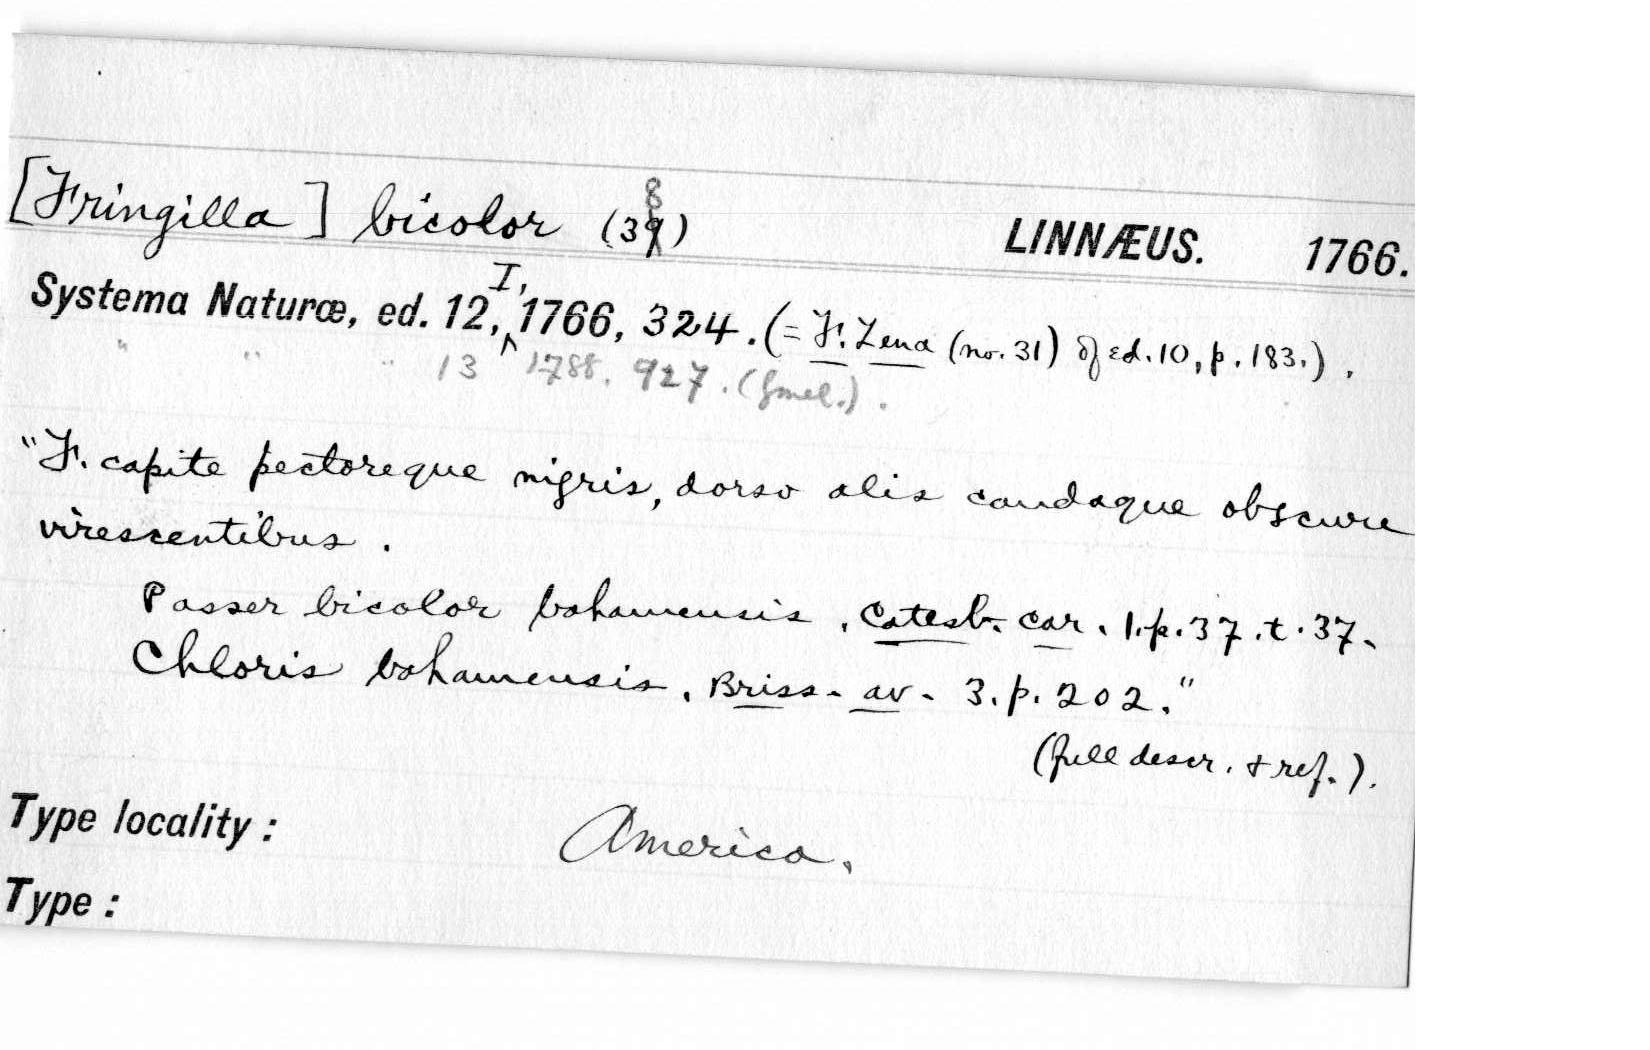 [Fringilla] bicolor (38) LINNÆUS. 1766.
Systema Naturæ, ed. 12, I, 1766, 324. (= F. Zena (no. 31) of ed. 10, p. 183.).
" " " 13 1788. 927. (Gmel.).
"F. capite pectoreque nigris, dorso alis caudaque obscure
virescentibus.
Passer bicolor bahamensis. Catesb. car. 1. p. 37. t. 37.
Chloris bahamensis. Briss. av. 3. p. 202."
(full descr. & ref.).
Type locality: America.
Type: